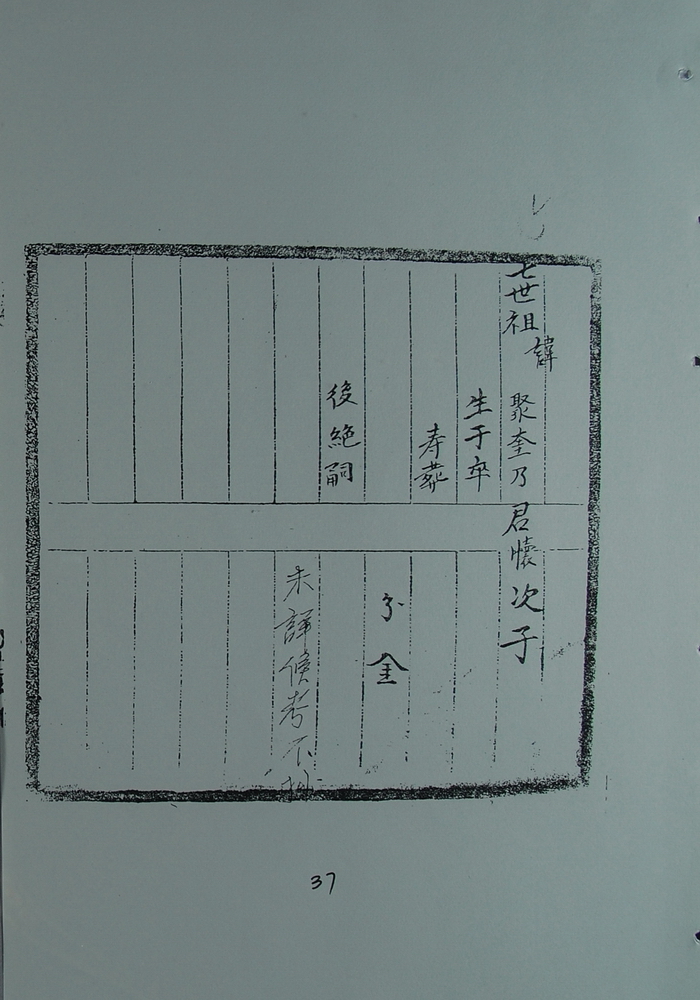 七世祖諱聚奎乃君懷次子
生于卒
寿葬
金
後絶嗣
未詳候考不
37